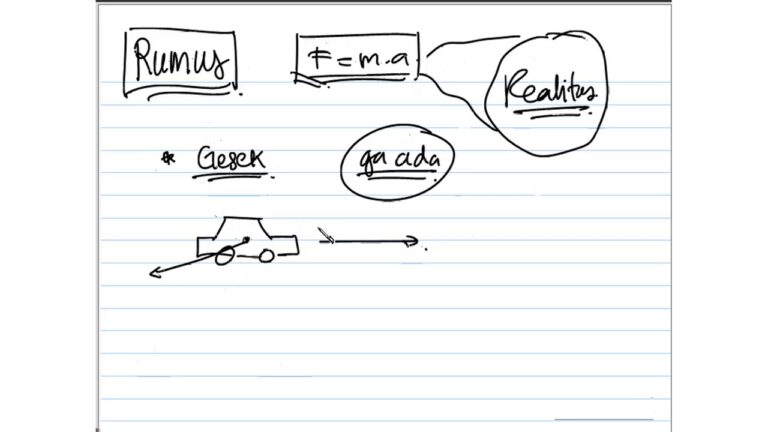 Rumus F = m.a Realitas
* Gesek ga ada